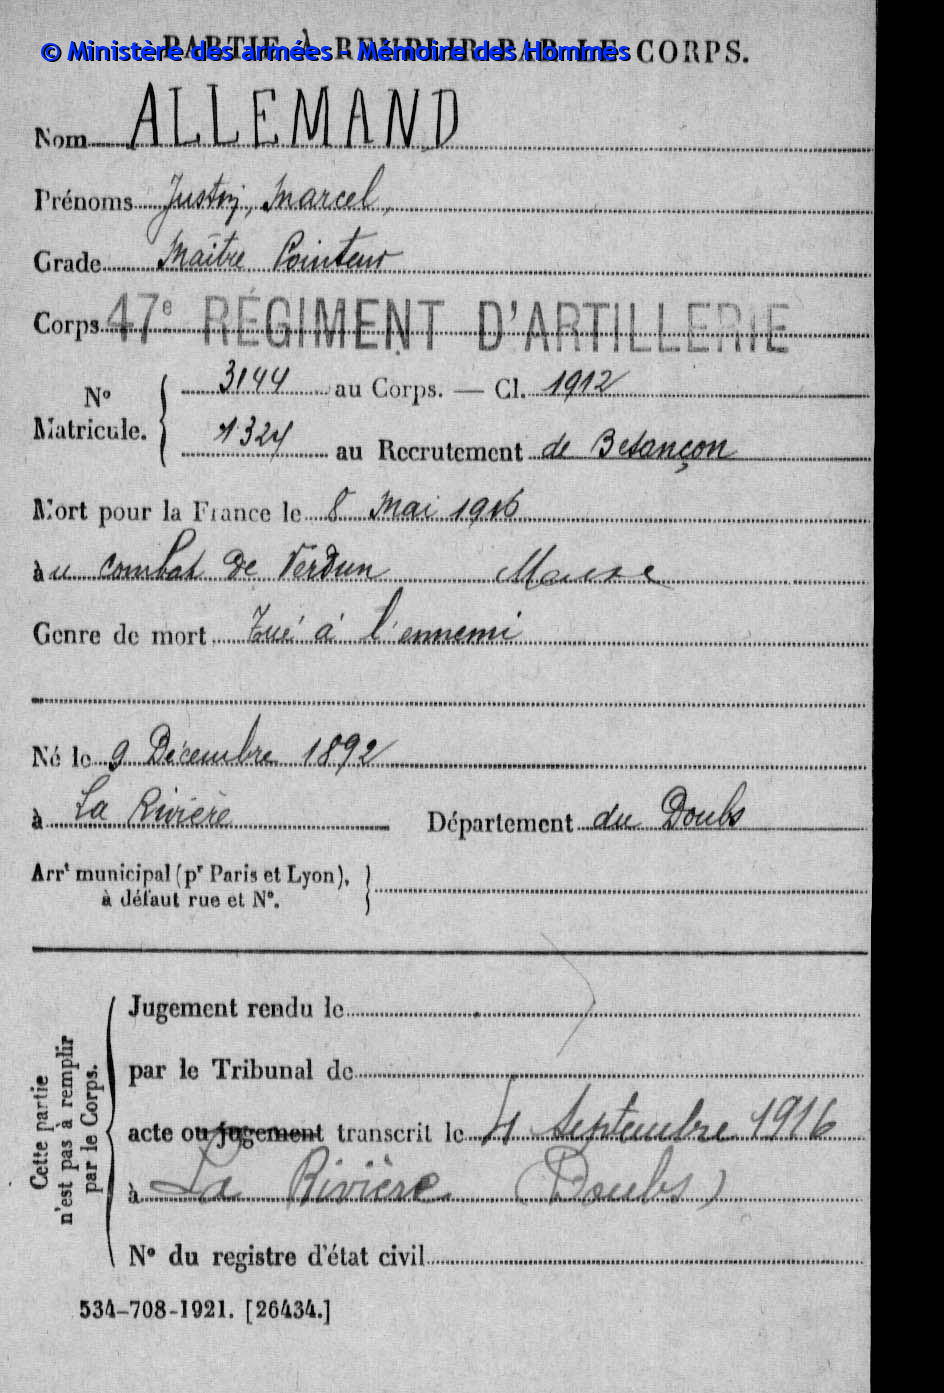 PARTIE À REMPLIR PAR LE CORPS.
© Ministère des armées - Mémoire des Hommes
Nom ALLEMAND
Prénoms Justin, Marcel,
Grade Maître Pointeur
Corps 47e RÉGIMENT D'ARTILLERIE
No Matricule. { 3144 au Corps. — Cl. 1912
1324 au Recrutement de Besançon
Mort pour la France le 8 Mai 1916
au combat de Verdun Meuse
Genre de mort Tué à l'ennemi
Né le 9 Décembre 1892
à La Rivière Département du Doubs
Arrt municipal (pr Paris et Lyon), }
à défaut rue et No.
Cette partie n'est pas à remplir par le Corps.
Jugement rendu le
par le Tribunal de
acte ou jugement transcrit le 4 Septembre 1916
à La Rivière (Doubs)
No du registre d'état civil
534-708-1921. [26434.]